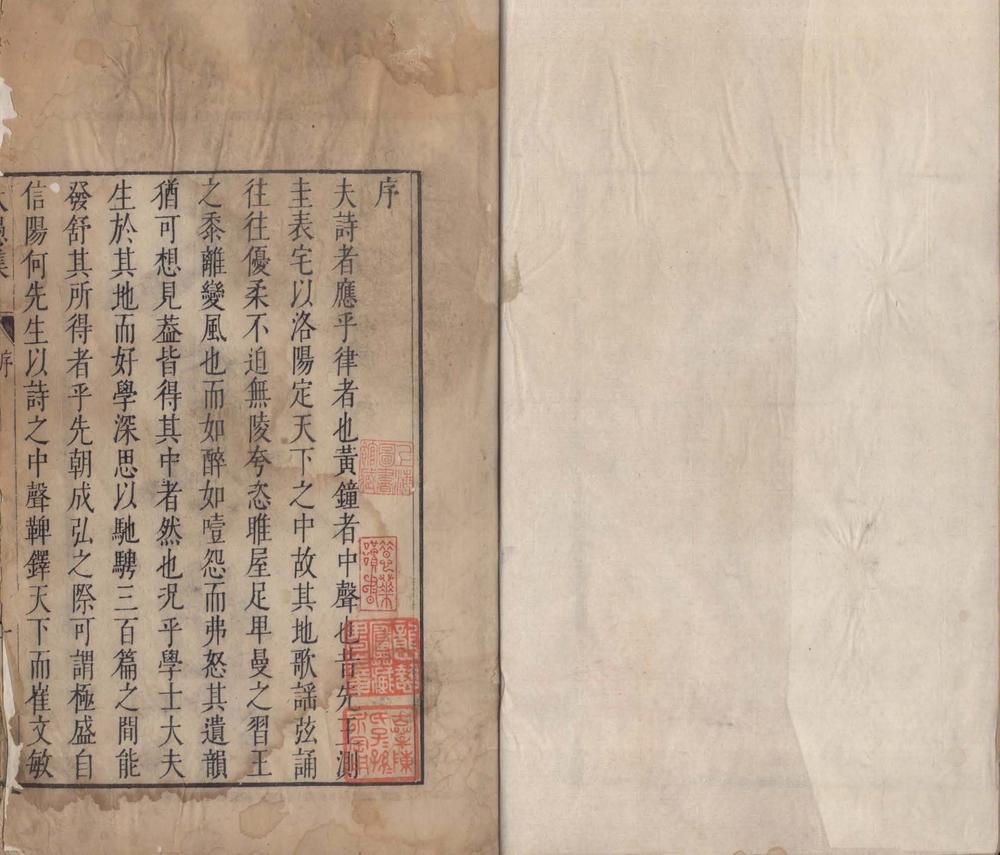 序
夫詩者應乎律者也黃鐘者中聲也昔先王測
圭表宅以洛陽定天下之中故其地歌謡弦誦
往往優柔不迫無陵夸恣睢屋足卑曼之習王
之黍離變風也而如醉如噎怨而弗怒其遺韻
猶可想見葢皆得其中者然也況乎學士大夫
生於其地而好學深思以馳騁三百篇之間能
發舒其所得者乎先朝成弘之際可謂極盛自
信陽何先生以詩之中聲鞞鐸天下而崔文敏
序